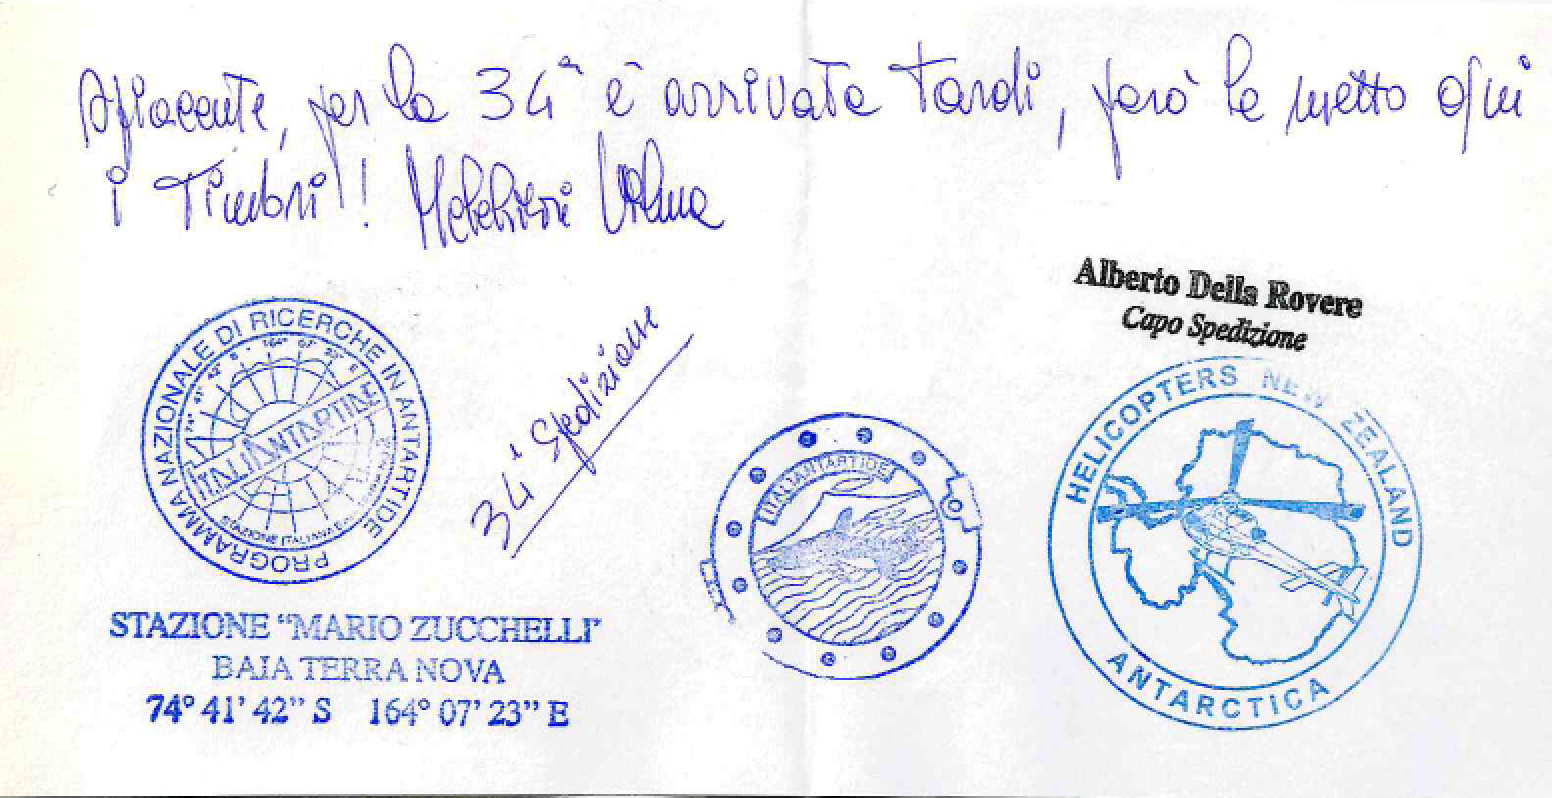 Spiacente, per la 34ª è arrivata tardi, però le metto qui
i Timbri!! Melchiori Vilma
Alberto Della Rovere
Capo Spedizione
PROGRAMMA NAZIONALE DI RICERCHE IN ANTARTIDE
ITALIANTARTIDE
34ª Spedizione
ITALIANTARTIDE
HELICOPTERS NEW ZEALAND
ANTARCTICA
STAZIONE "MARIO ZUCCHELLI"
BAIA TERRA NOVA
74° 41' 42" S 164° 07' 23" E